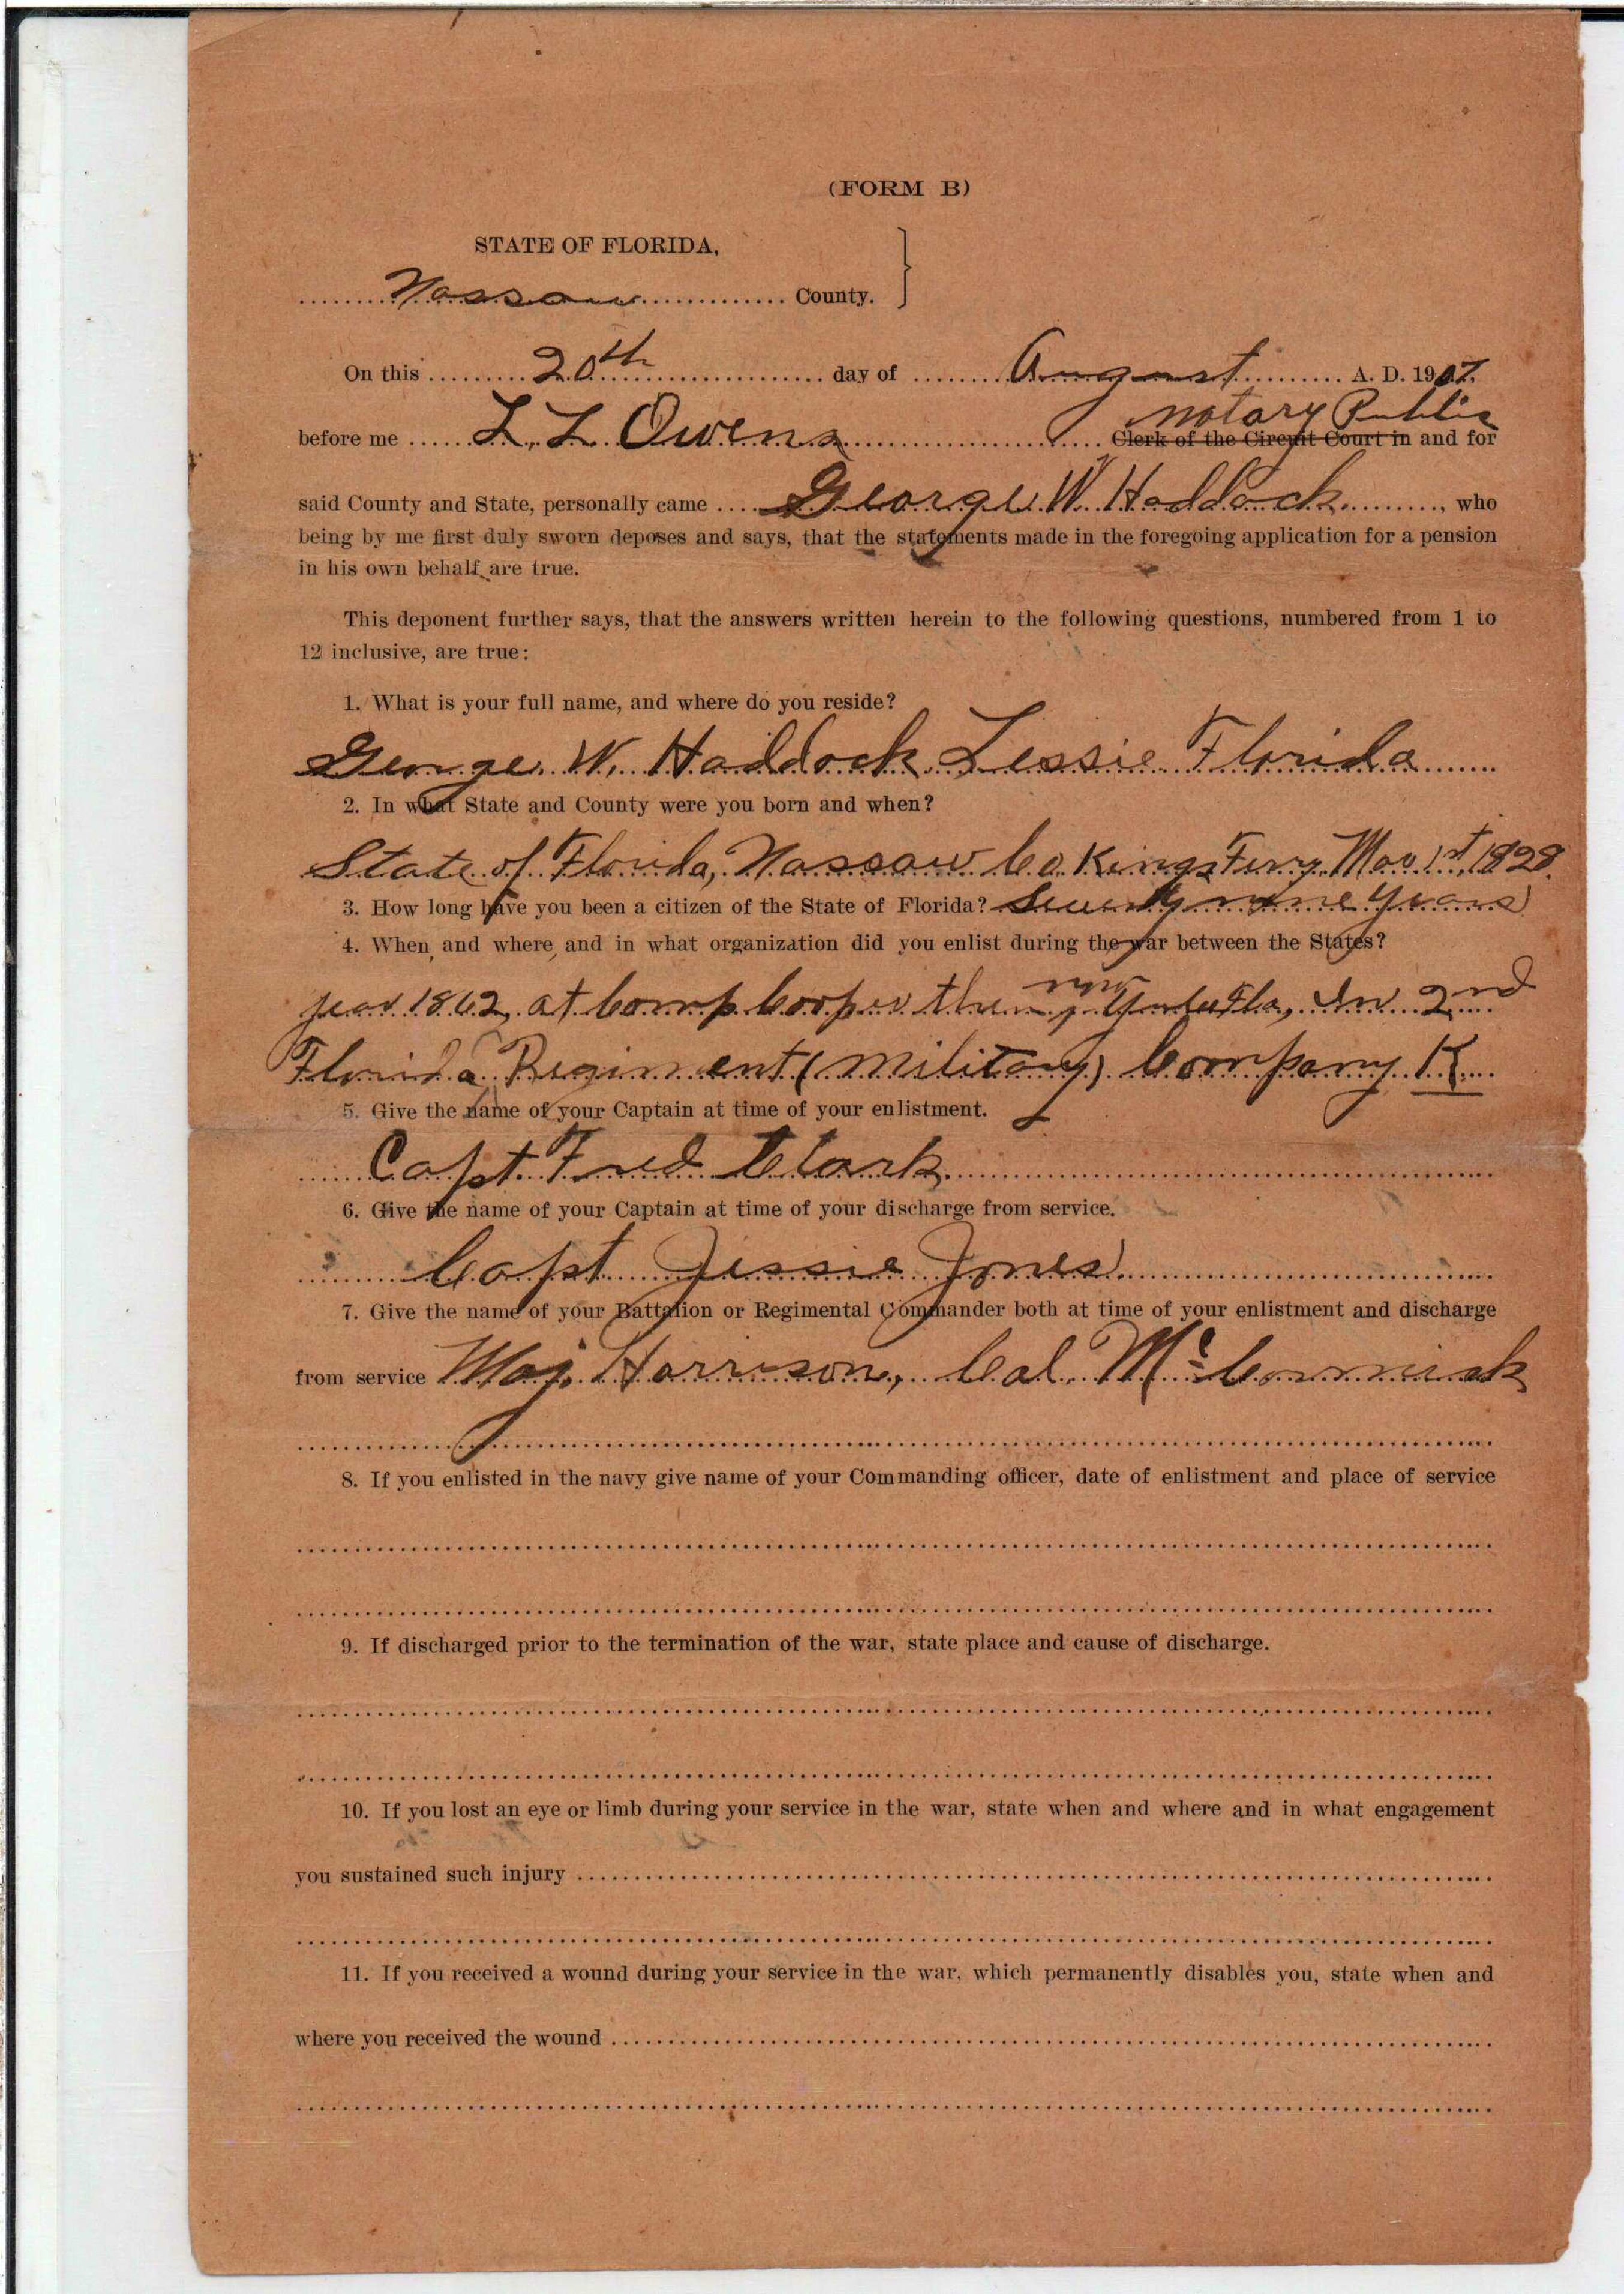 (FORM B)
STATE OF FLORIDA,
Nassau County.
On this 20th day of August A. D. 1907.
Notary Public
before me L. L. Owens Clerk of the Circuit Court in and for
said County and State, personally came George W. Haddock, who
being by me first duly sworn deposes and says, that the statements made in the foregoing application for a pension
in his own behalf are true.
This deponent further says, that the answers written herein to the following questions, numbered from 1 to
12 inclusive, are true:
1. What is your full name, and where do you reside?
George W. Haddock Lessie Florida
2. In what State and County were you born and when?
State of Florida, Nassau Co Kings Ferry 1st, 1828.
3. How long have you been a citizen of the State of Florida? Seventy nine years
4. When, and where, and in what organization did you enlist during the war between the States?
now
year 1862, at Camp Cooper then Yulee Fla, In 2nd
Florida Regiment (Military) Company K
5. Give the name of your Captain at time of your enlistment.
Capt. Fred Clark
6. Give the name of your Captain at time of your discharge from service.
Capt Jessie Jones
7. Give the name of your Battalion or Regimental Commander both at time of your enlistment and discharge
from service Maj. Harrison, Col. McCormick
8. If you enlisted in the navy give name of your Commanding officer, date of enlistment and place of service
9. If discharged prior to the termination of the war, state place and cause of discharge.
10. If you lost an eye or limb during your service in the war, state when and where and in what engagement
you sustained such injury
11. If you received a wound during your service in the war, which permanently disables you, state when and
where you received the wound